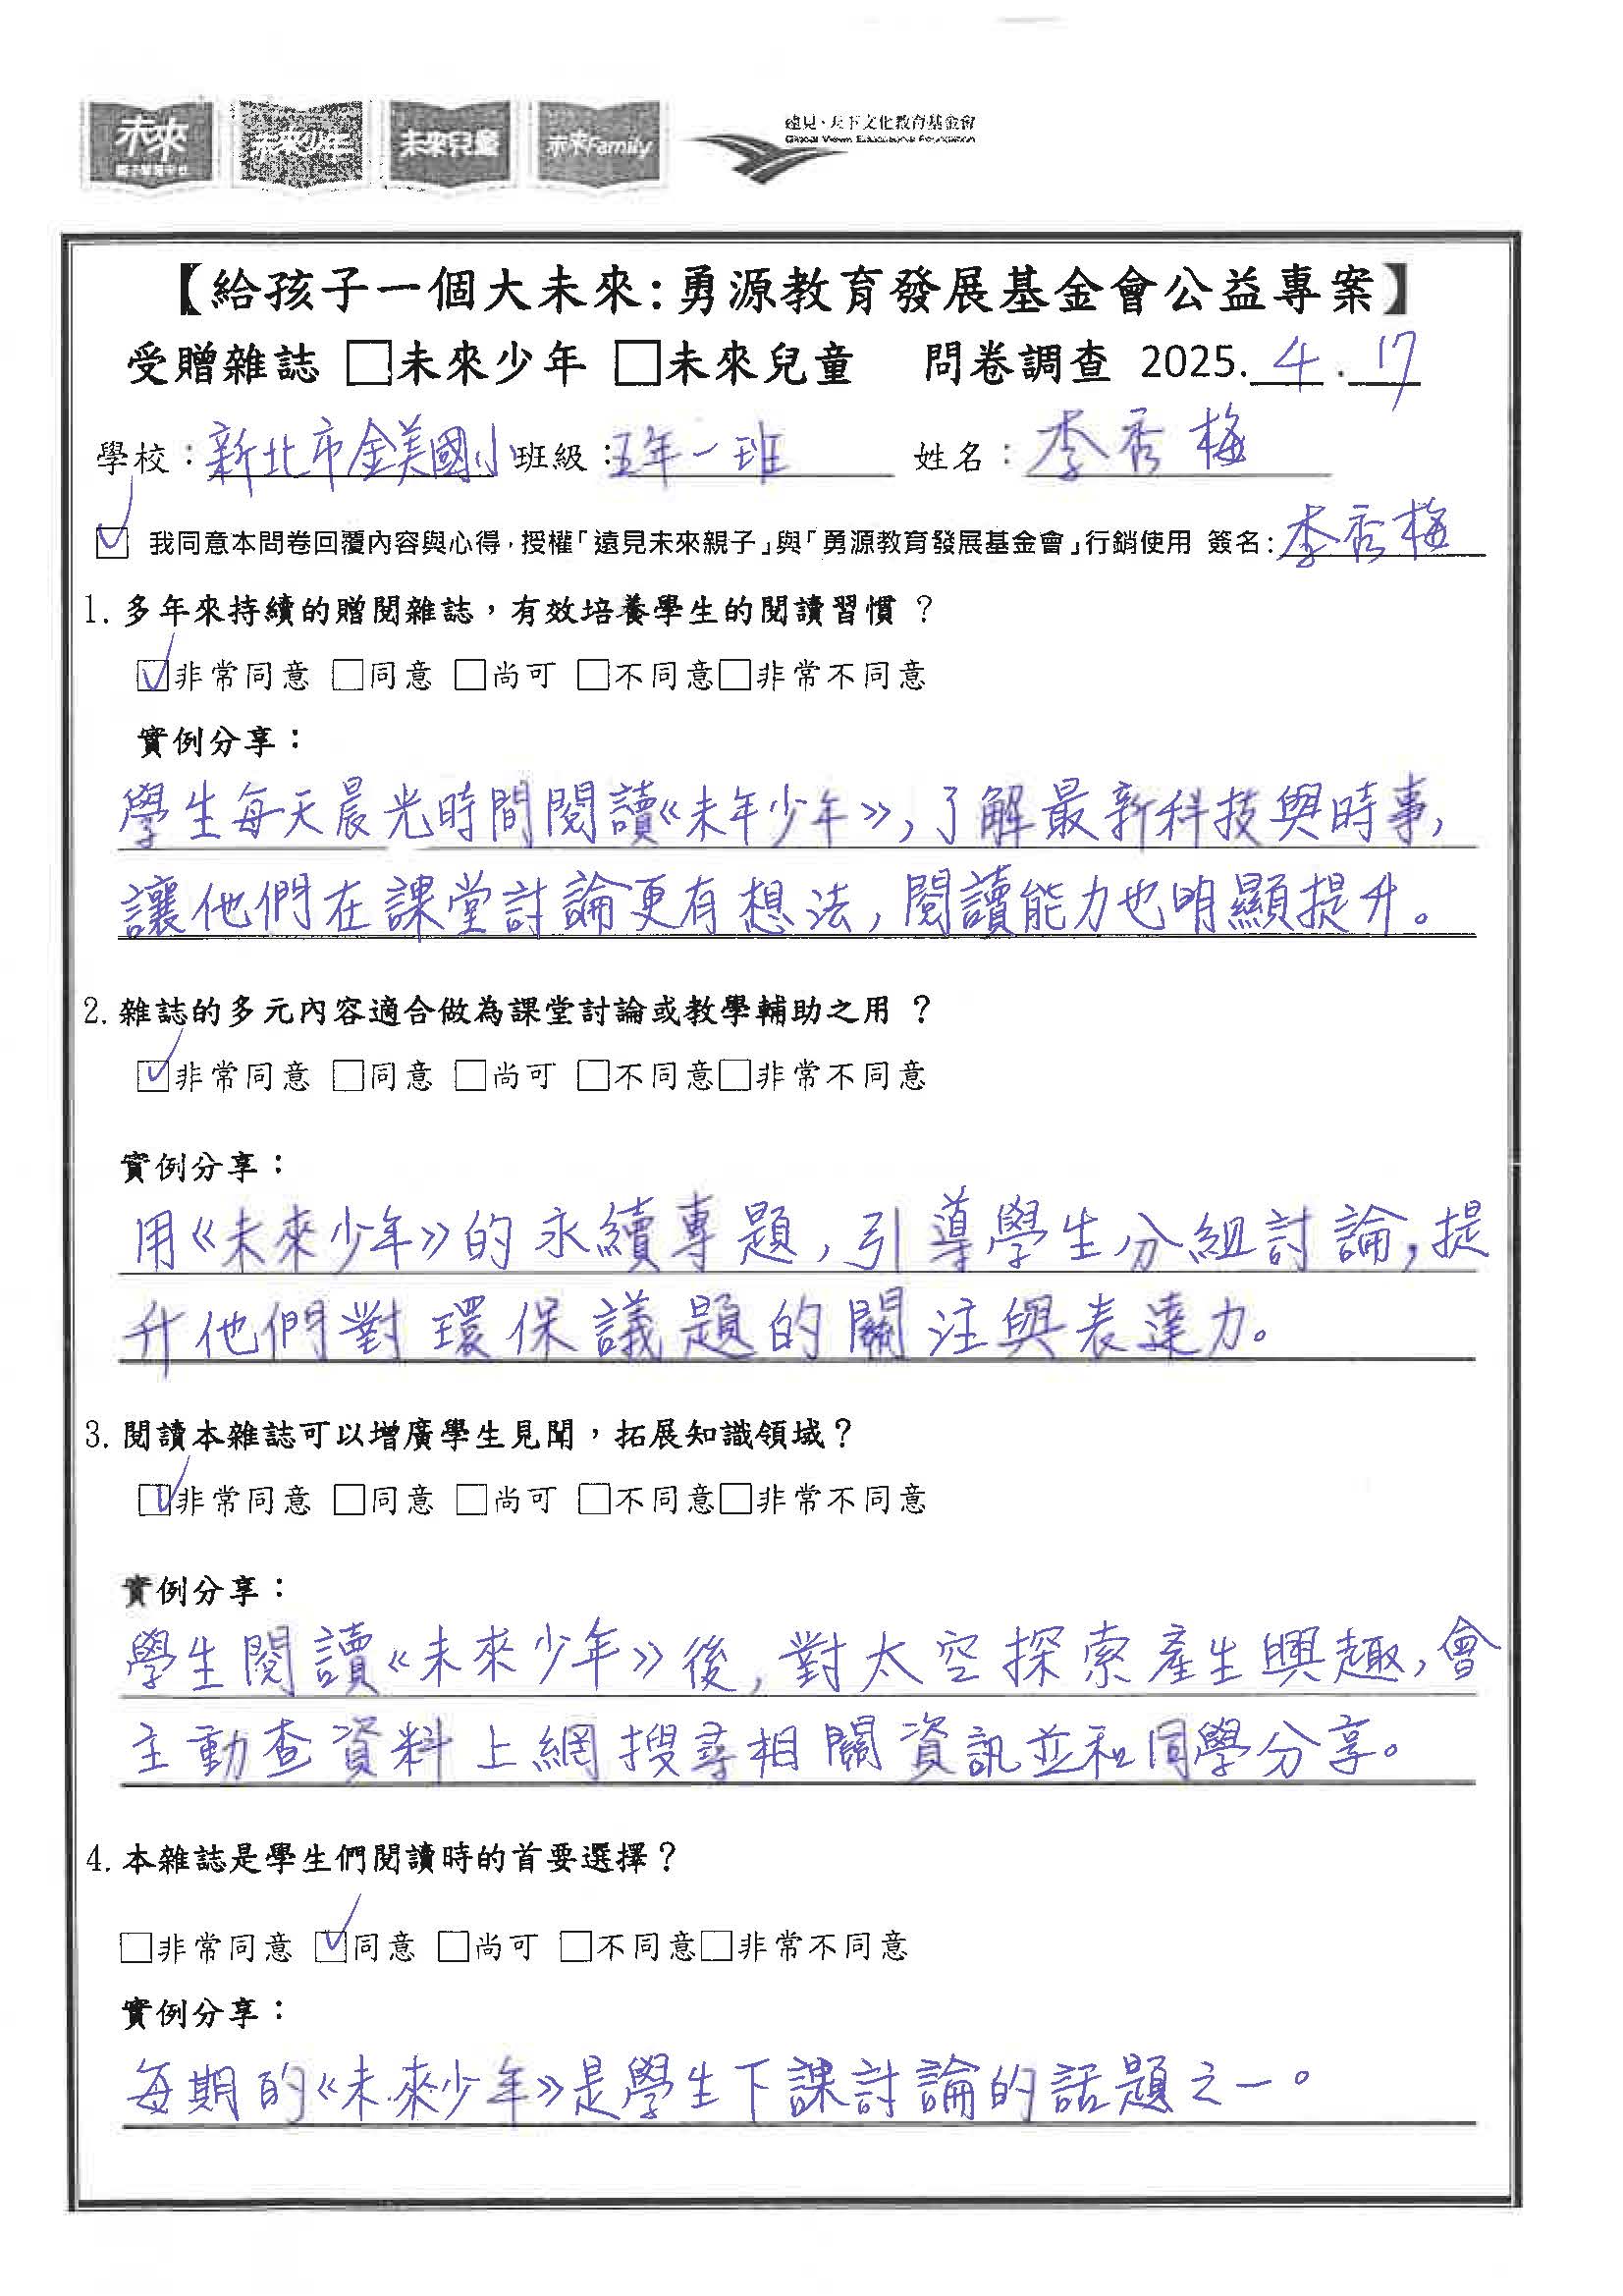 未來
親子學習平台
未來少年
未來兒童
未來Family
遠見‧天下文化教育基金會
Global Views Educational Foundation
【給孩子一個大未來:勇源教育發展基金會公益專案】
受贈雜誌 □未來少年 □未來兒童 問卷調查 2025. 4 . 17
學校:新北市金美國小 班級:五年一班 姓名:李秀梅
☑ 我同意本問卷回覆內容與心得,授權「遠見未來親子」與「勇源教育發展基金會」行銷使用 簽名:李秀梅
1. 多年來持續的贈閱雜誌,有效培養學生的閱讀習慣 ?
☑非常同意 □同意 □尚可 □不同意□非常不同意
實例分享:
學生每天晨光時間閱讀《未年少年》,了解最新科技與時事,
讓他們在課堂討論更有想法,閱讀能力也明顯提升。
2. 雜誌的多元內容適合做為課堂討論或教學輔助之用 ?
☑非常同意 □同意 □尚可 □不同意□非常不同意
實例分享:
用《未來少年》的永續專題,引導學生分組討論,提
升他們對環保議題的關注與表達力。
3. 閱讀本雜誌可以增廣學生見聞,拓展知識領域?
☑非常同意 □同意 □尚可 □不同意□非常不同意
實例分享:
學生閱讀《未來少年》後,對太空探索產生興趣,會
主動查資料上網搜尋相關資訊並和同學分享。
4. 本雜誌是學生們閱讀時的首要選擇?
□非常同意 ☑同意 □尚可 □不同意□非常不同意
實例分享:
每期的《未來少年》是學生下課討論的話題之一。